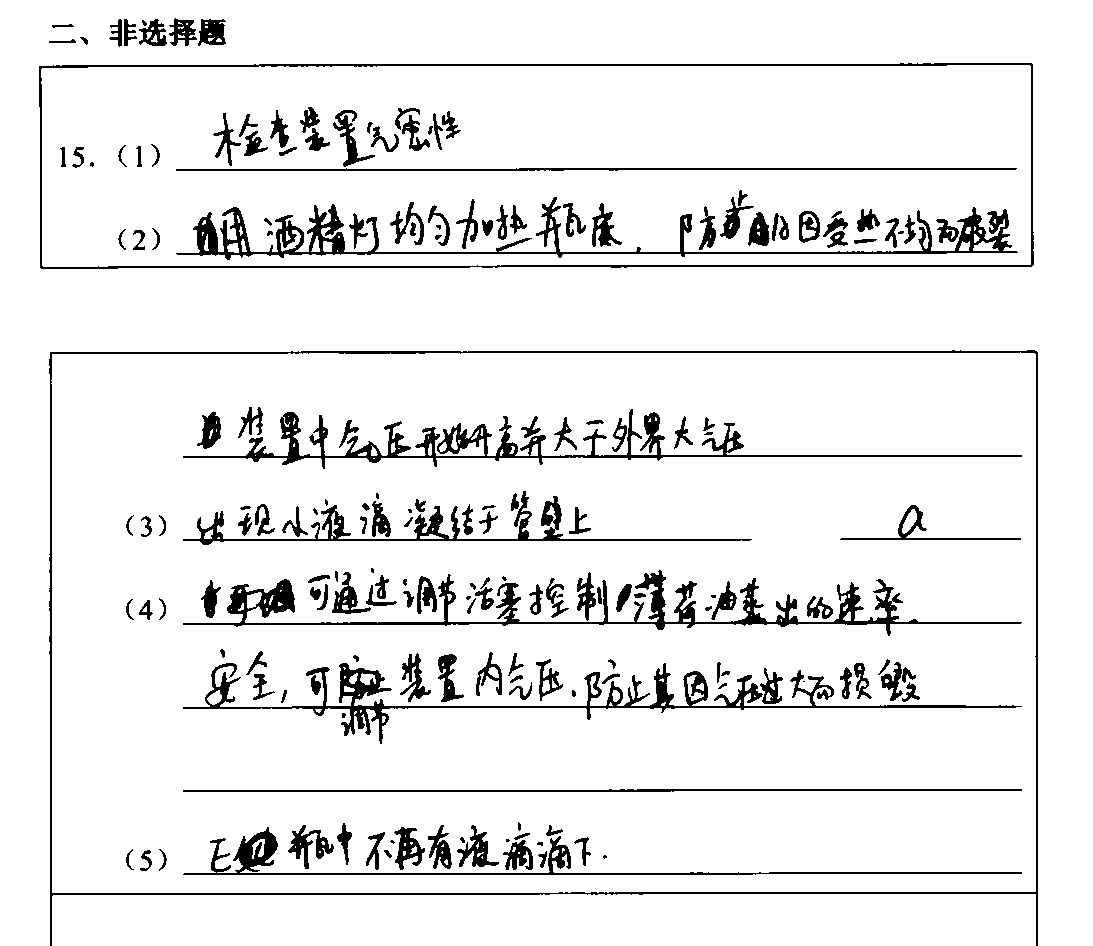 二、非选择题
15.（1） 检查装置气密性
（2） 用酒精灯均匀加热瓶底，防止 因受热不均而破裂
装置中气压开始升高并大于外界大气压
（3） 出现小液滴凝结于管壁上 a
（4） 可通过调节活塞控制薄荷油蒸出的速率.
安全，可 装置内气压，防止其因气压过大而损毁
调节
（5） E 瓶中不再有液滴滴下.